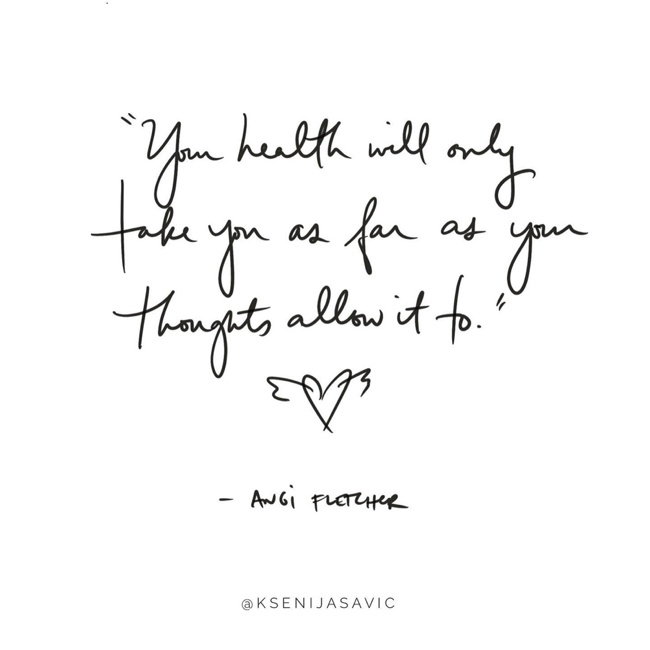 "Your health will only
take you as far as your
thoughts allow it to."
- ANGi FLETCHER
@KSENIJASAVIC